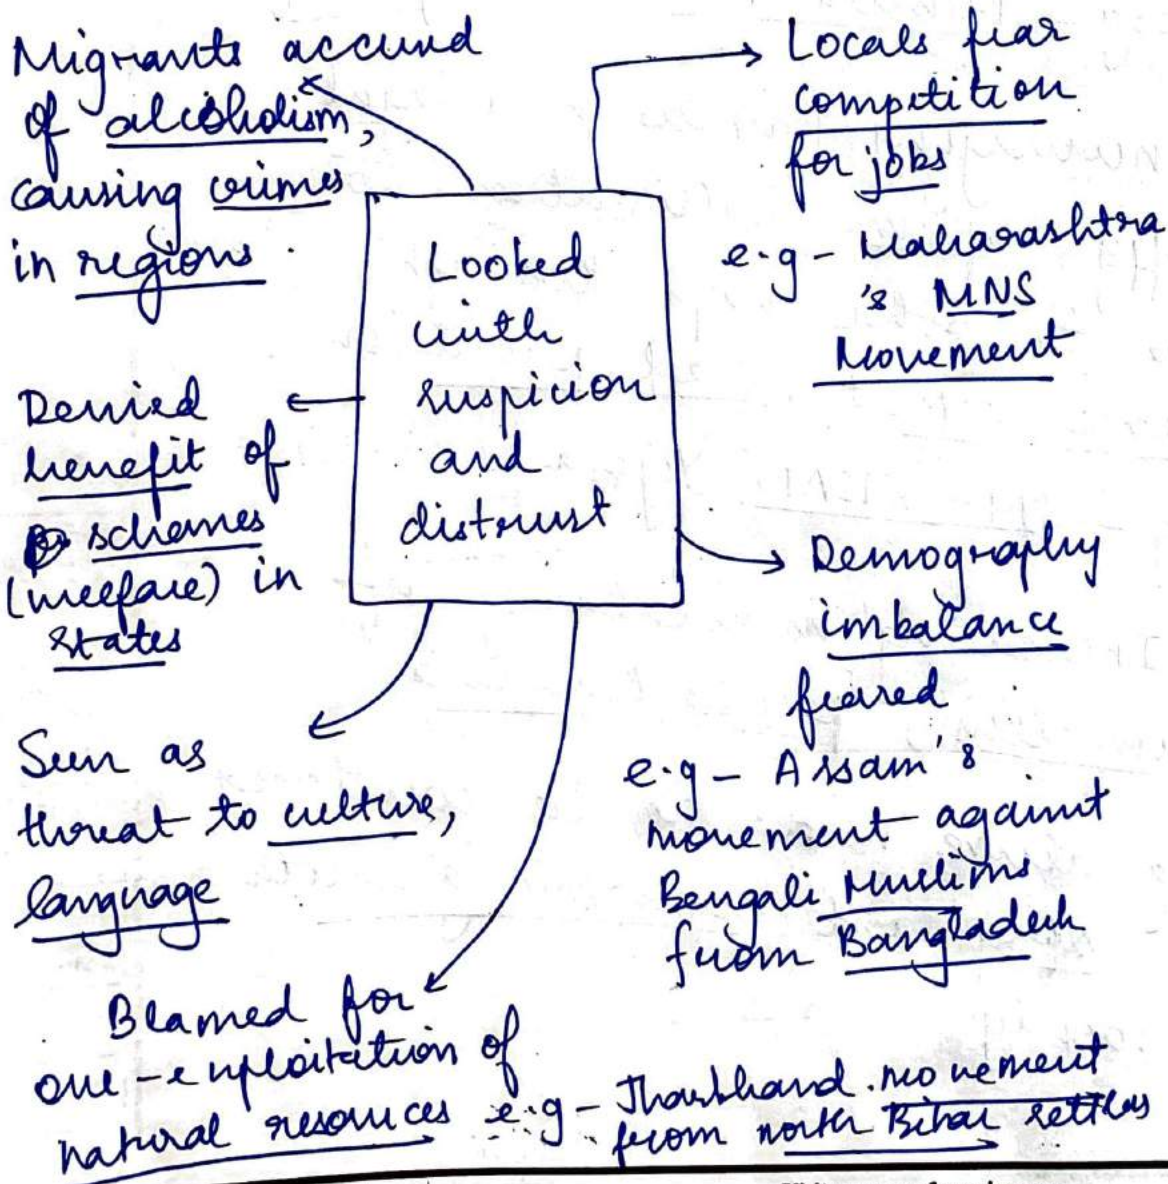 Migrants accused
of alcoholism,
causing crimes
in regions.
Locals fear
competition
for jobs
e.g - Maharashtra
's MNS
Movement
Looked
with
suspicion
and
distrust
Denied
benefit of
schemes
(welfare) in
states
Demography
imbalance
feared
e.g - Assam's
movement against
Bengali Muslims
from Bangladesh
Seen as
threat to culture,
language
Blamed for
over-exploitation of
natural resources e.g - Jharkhand movement
from north Bihar settlers